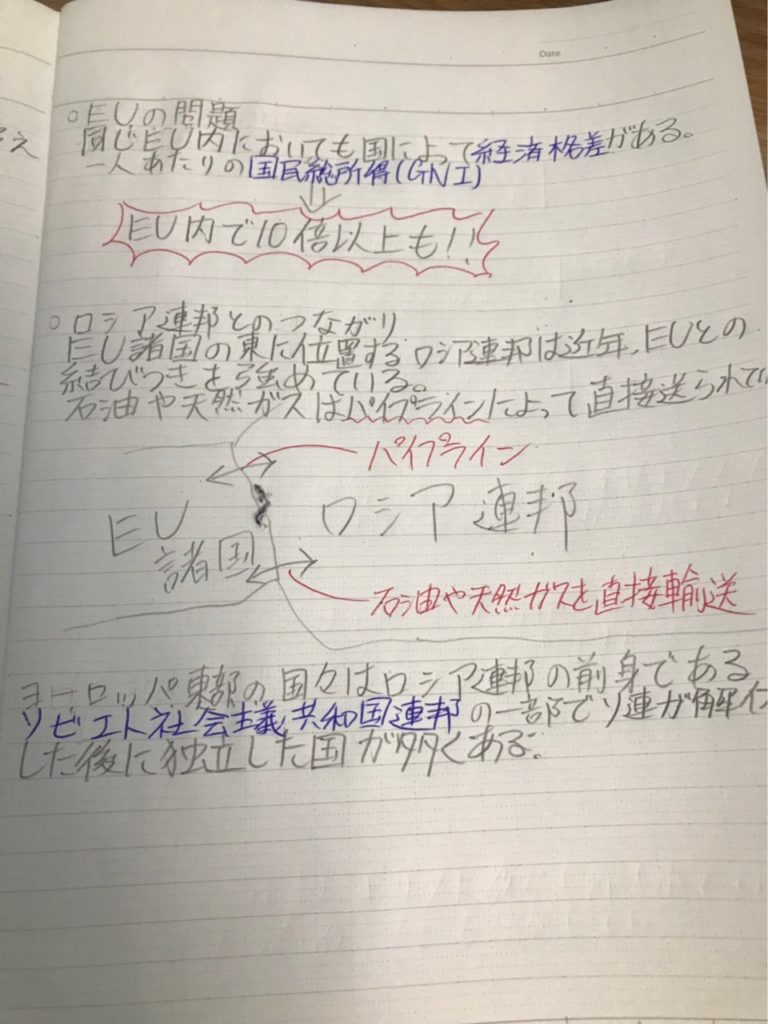 Date
え
○EUの問題
同じEU内においても国によって経済格差がある。
一人あたりの国民総所得(GNI)
EU内で10倍以上も!!
○ロシア連邦とのつながり
EU諸国の東に位置するロシア連邦は近年、EUとの
結びつきを強めている。
石油や天然ガスはパイプラインによって直接送られて
パイプライン
EU
諸国
ロシア連邦
石油や天然ガスを直接輸送
ヨーロッパ東部の国々はロシア連邦の前身である
ソビエト社会主義共和国連邦の一部でソ連が解体
した後に独立した国が多くある。